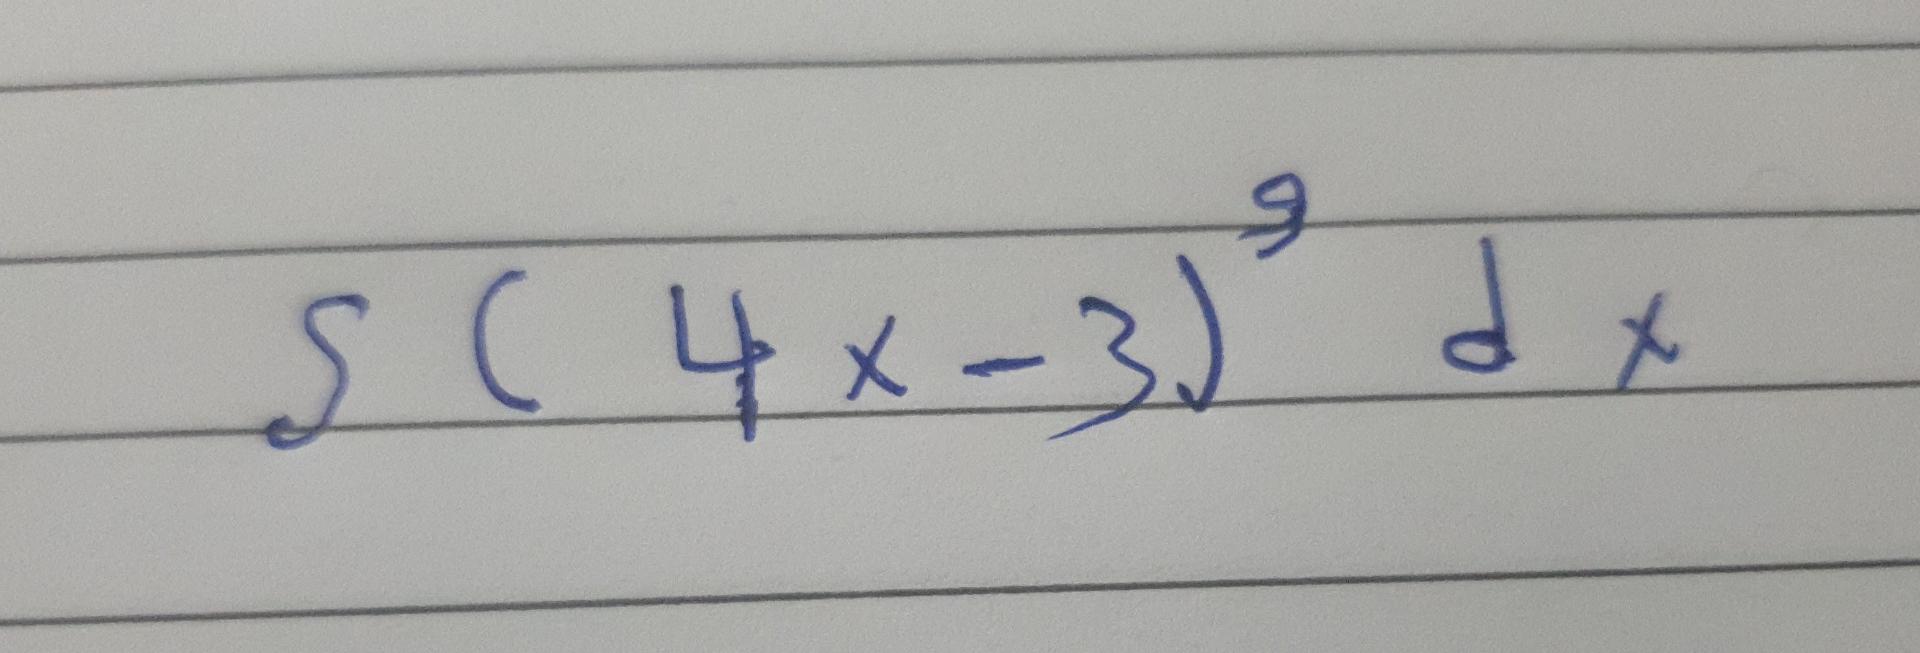 ∫ ( 4x - 3)⁹ dx